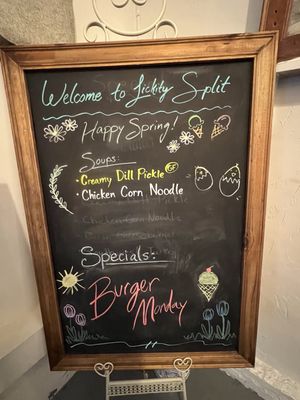 Welcome to Lickity Split
Happy Spring!
Soups:
• Creamy Dill Pickle GF
• Chicken Corn Noodle
Chicken Corn Noodle
Specials:
Burger
Monday